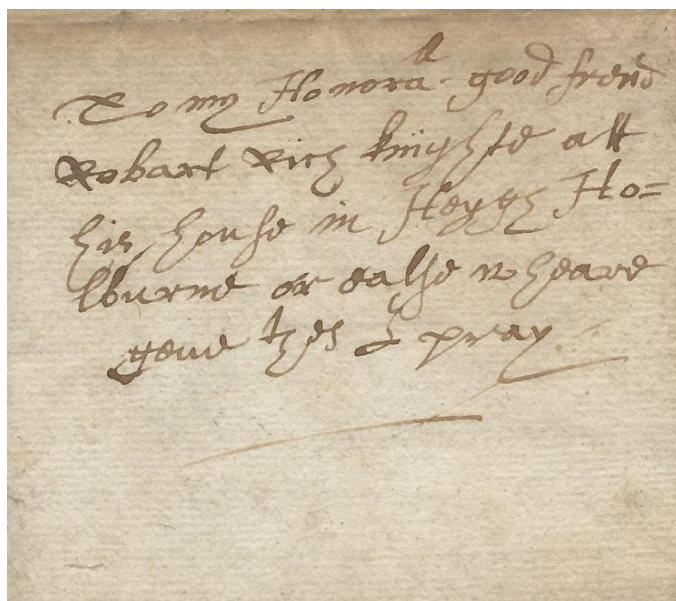 To my Honora^ll good frend
Robart Rich knighte att
his house in Heygh Ho=
lburne or ealse wheare
geue thes I pray.